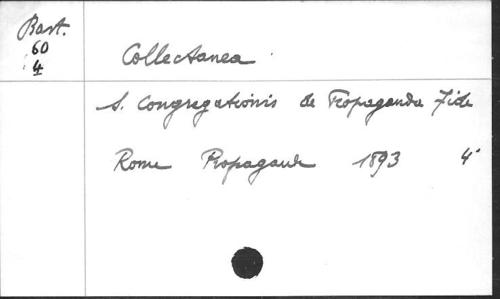 Bast.
60
4
Collectanea
S. Congregationis de Propaganda Fide
Rome Propagande 1893 4°